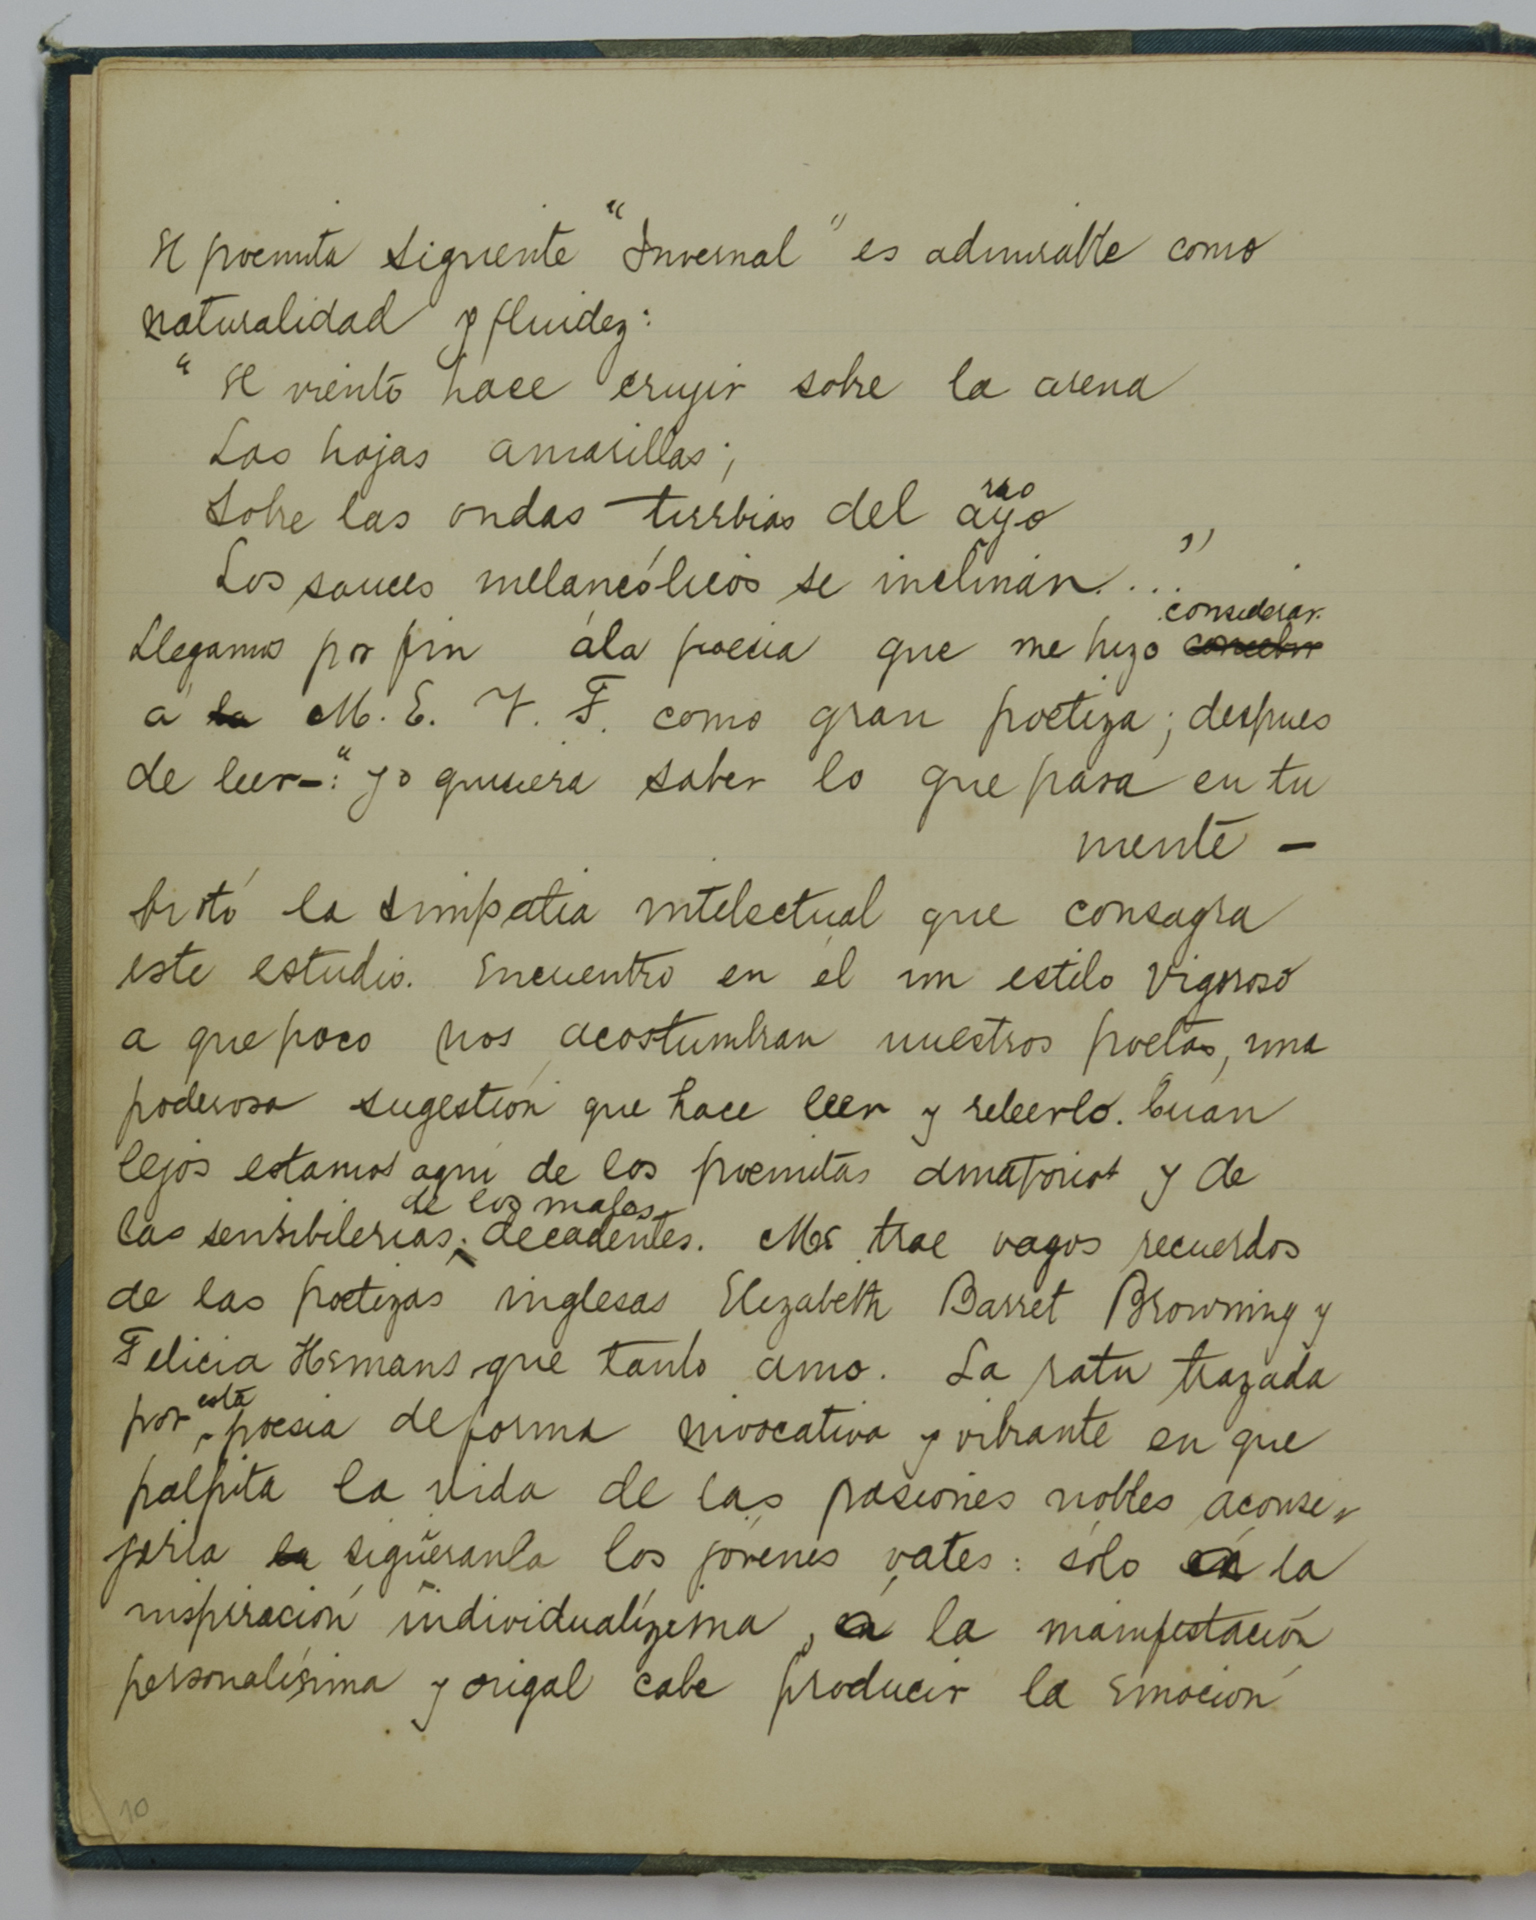 El poemita siguiente "Invernal" es admirable como
naturalidad y fluidez:
"El viento hace crujir sobre la arena
Las hojas amarillas;
Sobre las ondas turbias del arroyo
Los sauces melancólicos se inclinan...."
Llegamos por fin á la poesia que me hizo considerar
á M. E. V. F. como gran poetiza; despues
de leer-: "yo quisiera saber lo que pasa en tu
mente -
brotó la simpatia intelectual que consagra
este estudio. Encuentro en él un estilo vigoroso
a que poco nos acostumbran nuestros poetas, una
poderosa sugestión que hace leer y releerlo. Cuan
lejos estamos aqui de los poemitas amatorios y de
las sensiblerias de los malos decadentes. Me trae vagos recuerdos
de las poetizas inglesas Elizabeth Barret Browning y
Felicia Hemans que tanto amo. La ruta trazada
por esta poesia de forma invocativa y vibrante en que
palpita la vida de las pasiones nobles aconse-
jaria siguieranla los jóvenes vates: sólo la
inspiración individualízima, la manifestación
personalísima y origal cabe producir la emoción
10